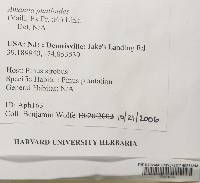 Amanita
(Vaill. Ex Fr.) Link
Det. N/A
USA: NJ: Dennisville: Jake's Landing Rd
39.189940, -74.853530
Host: Pinus strobus
Specific Habitat: Pinus plantation
General Habitat: N/A
ID: Aph163
Coll. Benjamin Wolfe 10/21/2006
HARVARD UNIVERSITY HERBARIA